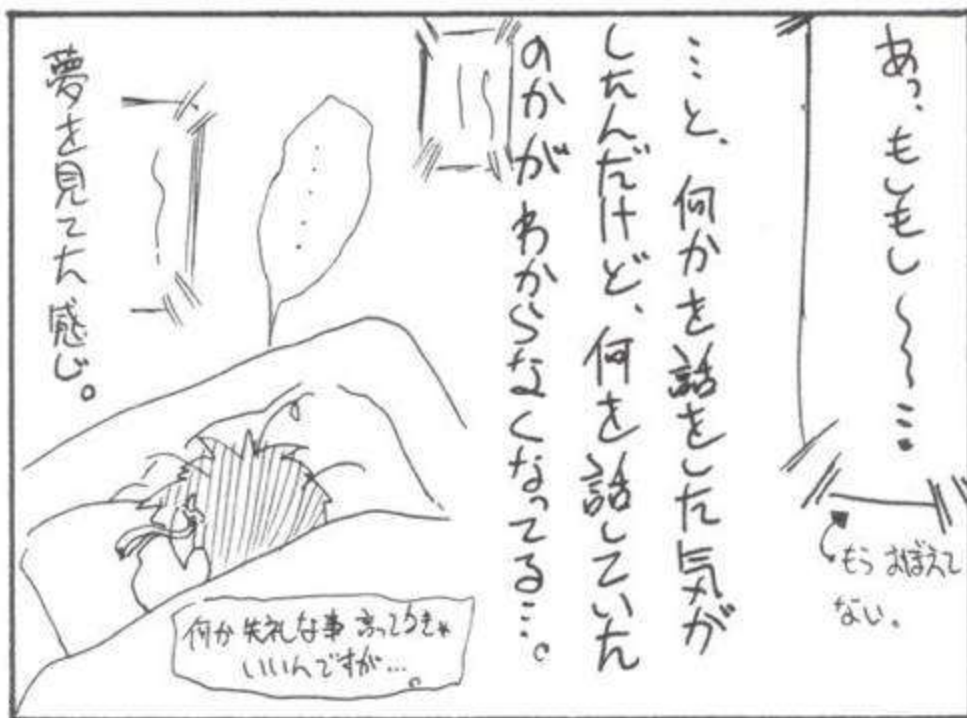 あっ、もしもし〜〜…
もうおぼえて
ない。
…と、何かを話をした気が
したんだけど、何を話していた
のかがわからなくなってる…。
・・・・・
夢を見てた感じ。
何か失礼な事言ってなきゃ
いいんですが…。